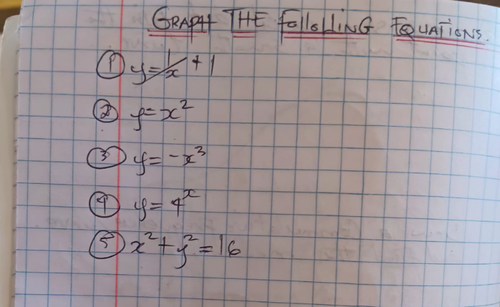 GRAPH THE FOLLOWING EQUATIONS.
① y = 1/x + 1
② y = x²
③ y = -x³
④ y = 4ˣ
⑤ x² + y² = 16